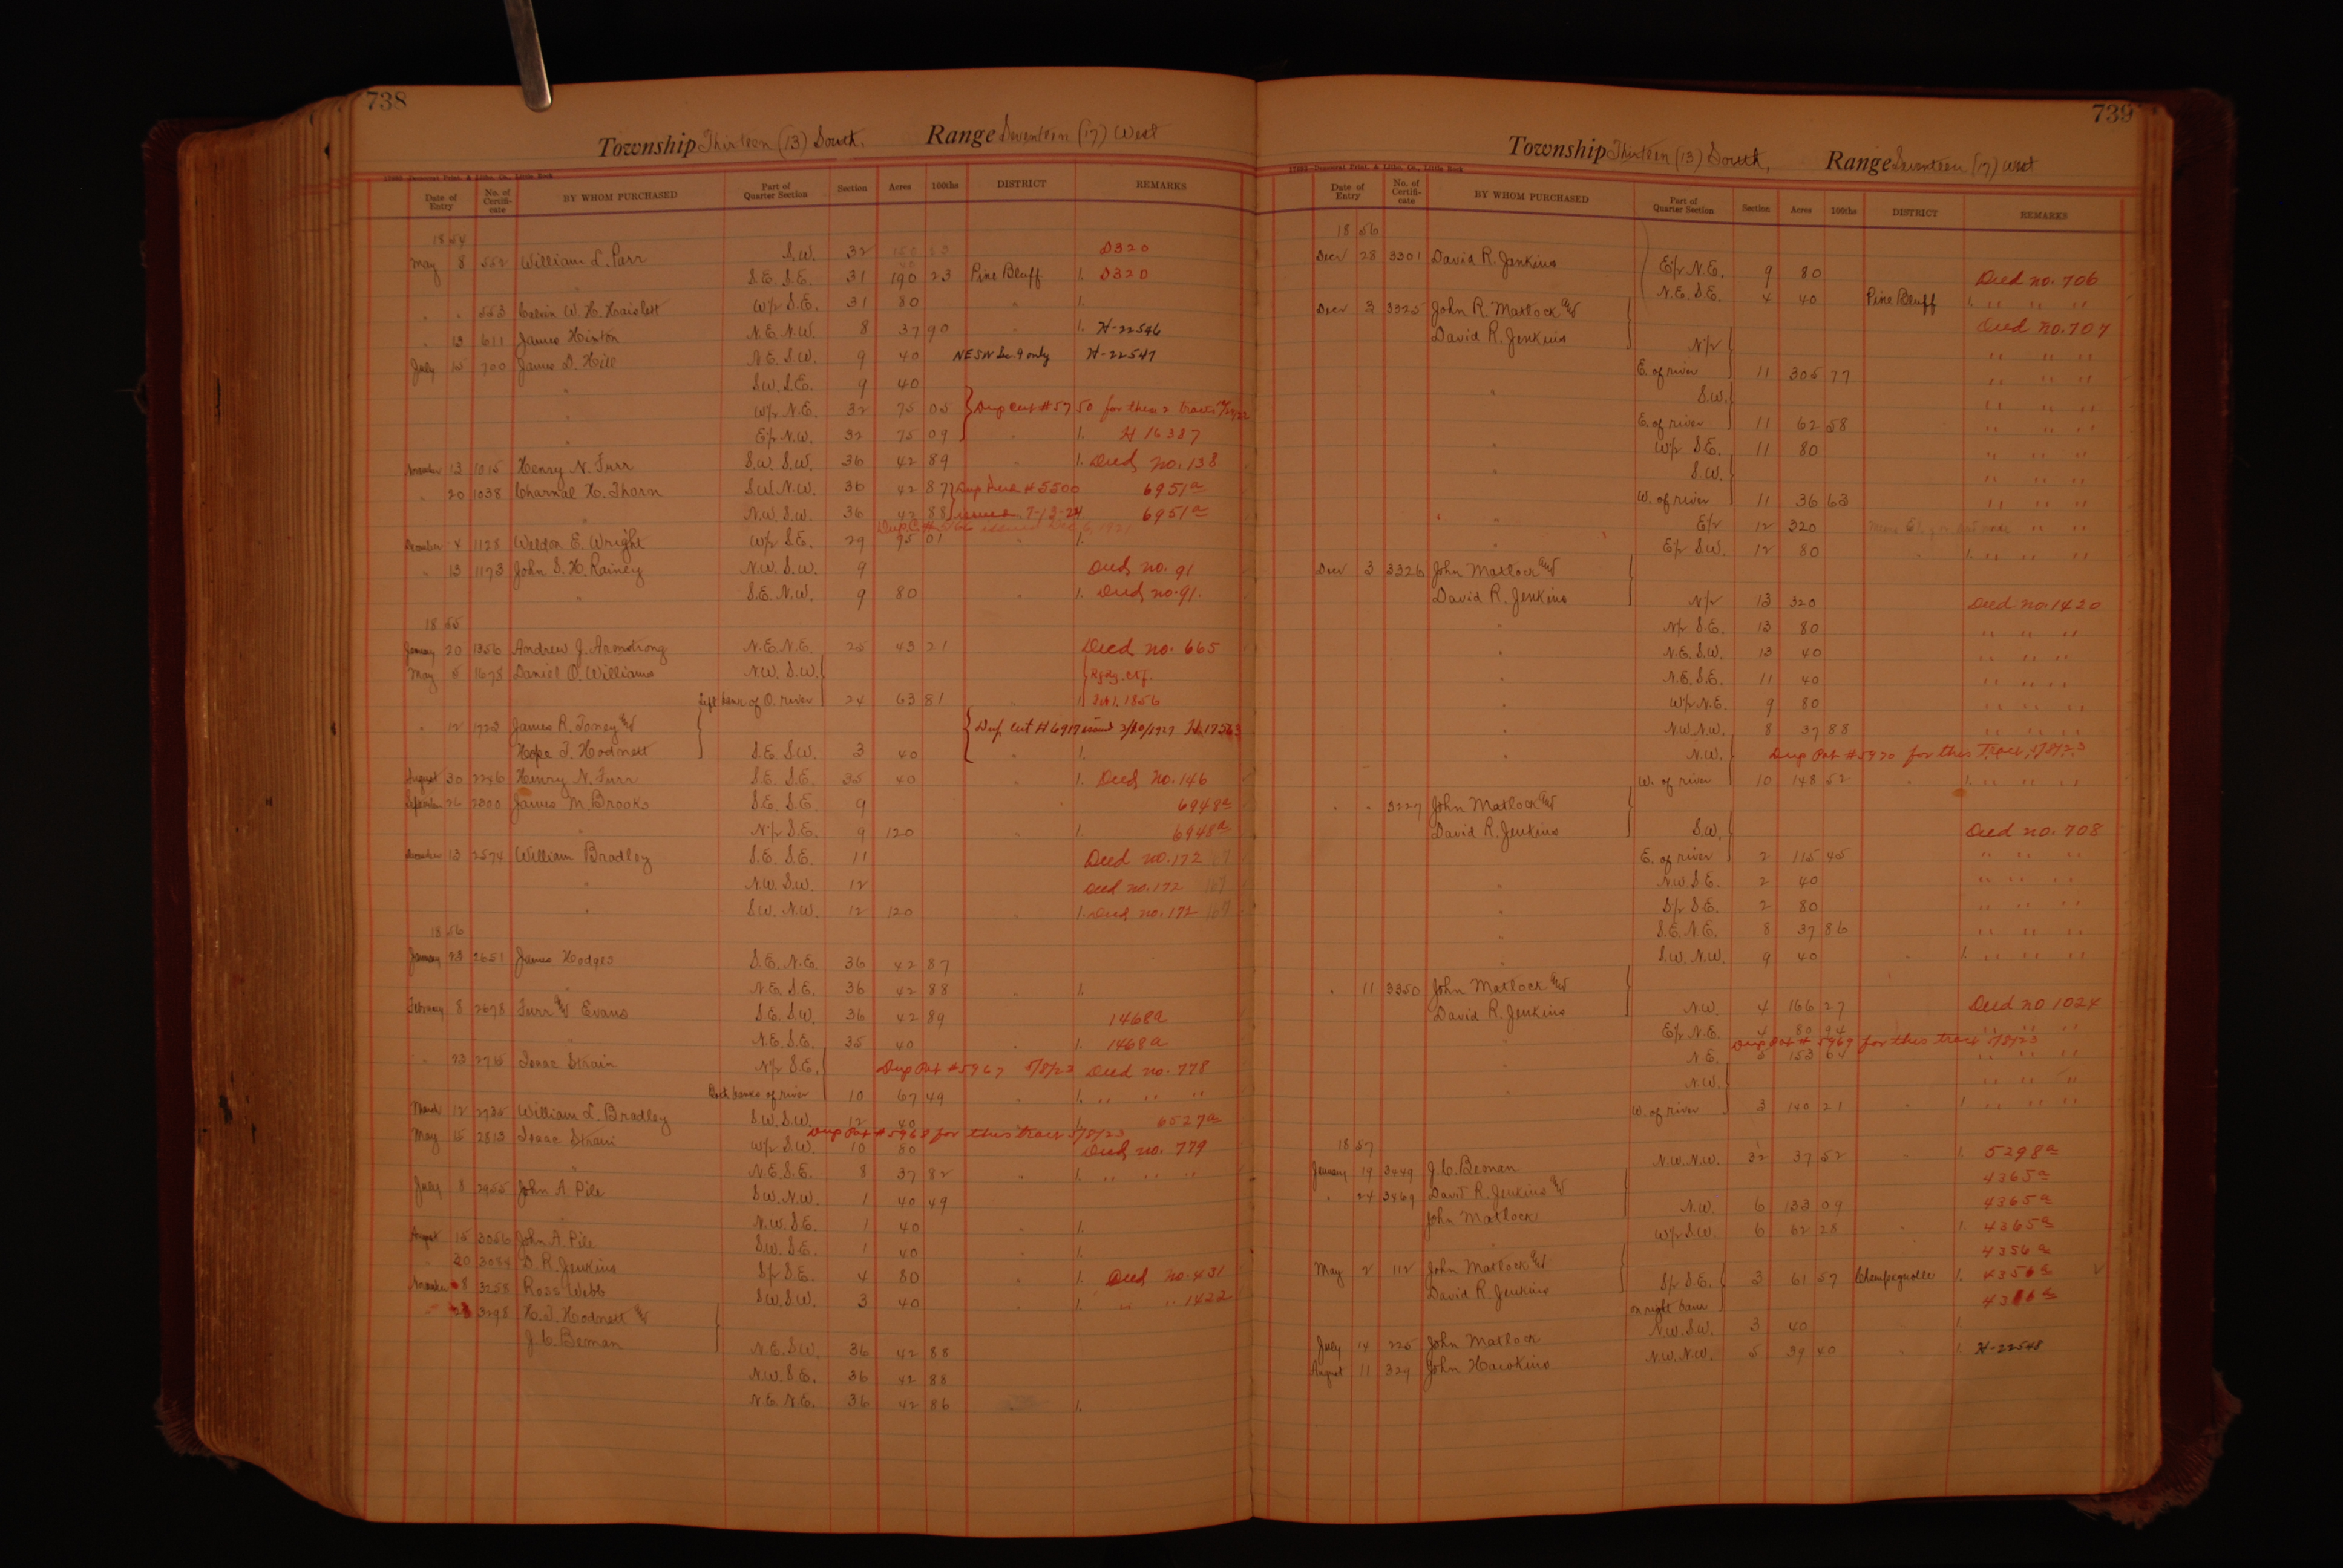 738
Township Thirteen (13) South. Range Seventeen (17) West
17493—Democrat Print. & Litho. Co., Little Rock
Date of Entry No. of Certifi-cate BY WHOM PURCHASED Part of Quarter Section Section Acres 100ths DISTRICT REMARKS
1854
May 8 552 William L. Parr S.W. 32 D320
S.E. S.E. 31 190 23 Pine Bluff 1. D320
" " 553 Calvin W. H. Haislett W/2 S.E. 31 80 " 1.
" 13 611 James Hinton N.E. N.W. 8 37 90 " 1. H-22546
July 10 700 James D. Hill N.E. S.W. 9 40 NESW Sec. 9 only H-22547
" S.W. S.E. 9 40
" W/2 N.E. 32 75 05 Dup Cert #5750 for these 2 tracts
" E/2 N.W. 32 75 09 " 1. H 16387
November 13 1015 Henry N. Furr S.W. S.W. 36 42 89 " 1. Deed no. 138
" 20 1038 Charnal H. Thorn S.W. N.W. 36 42 87 Dup Deed #5500 6951a
" N.W. S.W. 36 42 88 issued 7-13-24 6951a
Dup. C. issued Dec. 6, 1921
December 4 1128 Weldon E. Wright W/2 S.E. 29 95 01 " 1.
" 13 1173 John S. H. Rainey N.W. S.W. 9 Deed no. 91
" S.E. N.W. 9 80 " 1. Deed no. 91.
1855
January 20 1356 Andrew J. Armstrong N.E. N.E. 25 43 21 Deed no. 665
May 5 1678 Daniel O. Williams N.W. S.W.
Left bank of O. river 24 63 81 1. Feb 1, 1856
" 12 1723 James R. Toney and Dup Cert #6917 issued 3/20/1927 H.17563
Hope T. Hodnett S.E. S.W. 3 40 " 1.
August 30 2246 Henry N. Furr S.E. S.E. 35 40 " 1. Deed no. 146
September 26 2300 James M. Brooks S.E. S.E. 9 6948a
" N/2 S.E. 9 120 " 1. 6948a
December 13 2574 William Bradley S.E. S.E. 11 Deed no. 172 167
" N.W. S.W. 12 Deed no. 172 167
" S.W. N.W. 12 120 " 1. Deed no. 172 167
1856
January 23 2651 James Hodges S.E. N.E. 36 42 87
" N.E. S.E. 36 42 88 " 1.
February 8 2678 Furr and Evans S.E. S.W. 36 42 89 1468a
" N.E. S.E. 35 40 " 1. 1468a
" 23 2715 Isaac Strain N/2 S.E. Dup Pat #5967 5/8/23 Deed no. 778
Both banks of river 10 67 49 " 1. " " "
March 12 2735 William L. Bradley S.W. S.W. 12 40 1. 6527a
Dup Pat #5968 for this tract 5/8/23
May 15 2813 Isaac Strain W/2 S.W. 10 80 Deed no. 779
" N.E. S.E. 8 37 82 " 1. " " "
July 8 2955 John A. Pile S.W. N.W. 1 40 49
" N.W. S.E. 1 40 " 1.
August 15 3056 John A. Pile S.W. S.E. 1 40 " 1.
" 20 3084 D. R. Jenkins S/2 S.E. 4 80 " 1. Deed no. 431
November 8 3258 Ross Webb S.W. S.W. 3 40 " 1. " " 1422
3298 H. T. Hodnett and
J. C. Beman N.E. S.W. 36 42 88
N.W. S.E. 36 42 88
N.E. N.E. 36 42 86 " 1.
739
Township Thirteen (13) South, Range Seventeen (17) West
17493—Democrat Print. & Litho. Co., Little Rock
Date of Entry No. of Certifi-cate BY WHOM PURCHASED Part of Quarter Section Section Acres 100ths DISTRICT REMARKS
1856
Decr 28 3301 David R. Jenkins E/2 N.E. 9 80 Deed no. 706
N.E. S.E. 4 40 Pine Bluff 1. " " "
Decr 3 3325 John R. Matlock and Deed no. 707
David R. Jenkins N/2 " " "
E. of river 11 305 77 " " "
" S.W. " " "
E. of river 11 62 58 " " "
" W/2 S.E. 11 80 " " "
" S.W. " " "
W. of river 11 36 63 " " "
" " E/2 12 320 " "
" E/2 S.W. 12 80 " 1. " " "
Decr 3 3326 John Matlock and
David R. Jenkins N/2 13 320 Deed no. 1420
" N/2 S.E. 13 80 " " "
" N.E. S.W. 13 40 " " "
" N.E. S.E. 11 40 " " "
" W/2 N.E. 9 80 " " "
" N.W. N.W. 8 37 88 " " "
" N.W. Dup Pat #5970 for this Tract, 5/8/23
W. of river 10 148 52 " 1. " " "
" " 3227 John Matlock and
David R. Jenkins S.W. Deed no. 708
E. of river 2 115 45 " " "
" N.W. S.E. 2 40 " " "
" S/2 S.E. 2 80 " " "
" S.E. N.E. 8 37 86 " " "
" S.W. N.W. 9 40 " 1. " " "
" 11 3350 John Matlock and
David R. Jenkins N.W. 4 166 27 Deed no 1024
" E/2 N.E. 4 80 94 " " "
Dup Pat # 5969 for this tract 5/8/23
" N.E. 5 153 64 " " "
" N.W. " " "
W. of river 3 140 21 " 1. " " "
1857
January 19 3449 J. C. Beman N.W. N.W. 32 37 52 " 1. 5298a
" 24 3469 David R. Jenkins and 4365a
John Matlock N.W. 6 133 09 4365a
" W/2 S.W. 6 62 28 " 1. 4365a
May 2 112 John Matlock and 4356a
David R. Jenkins S/2 S.E. 3 61 57 Champagnolle 1. 4356a
on right bank
July 14 225 John Matlock N.W. S.W. 3 40 1.
August 11 329 John Hawkins N.W. N.W. 5 39 40 " 1. H-22548